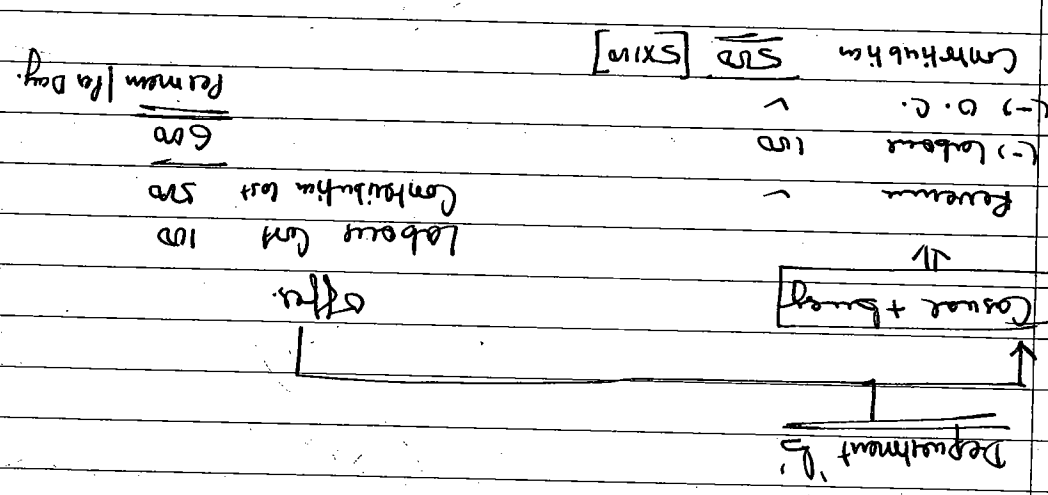 Department 'B'
Casual + busy
Offer.
⇓
Revenue ✓
(-) Labour 100
(-) O.C. ✓
Contribution 500 [5x100]
Labour Cost 100
Contribution lost 500
600
Per man / Per Day.